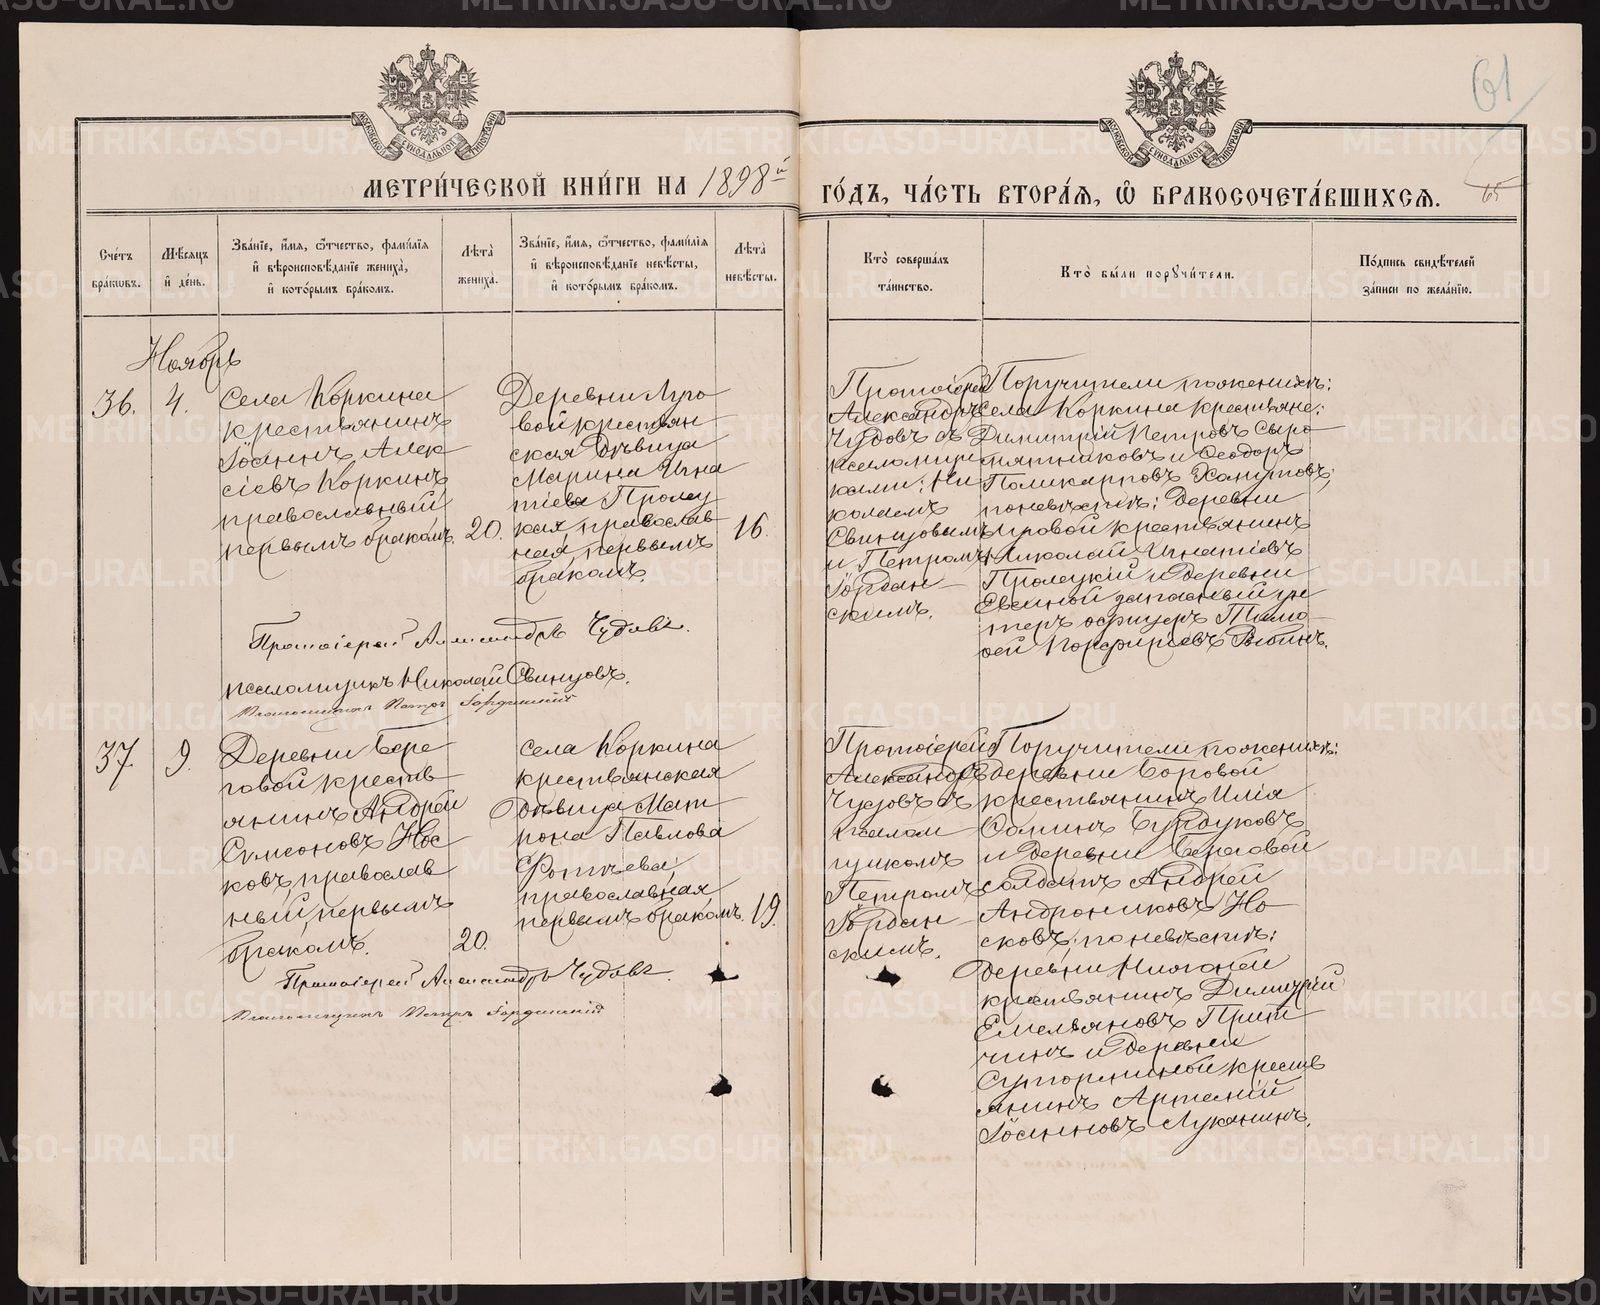 МЕТРИ́ЧЕСКОЙ КНИ́ГИ НА 1898й ГО́ДЪ, ЧА́СТЬ ВТОРА́Я, Ѽ БРАКОСОЧЕТА́ВШИХСЯ.
61
65
МОСКОВСКОЙ СѴНОДАЛЬНОЙ ТИПОГРАФІИ
МОСКОВСКОЙ СѴНОДАЛЬНОЙ ТИПОГРАФІИ
Сче́тъ бра́кωвъ.
Мѣ́сяцъ и҆ де́нь.
Зва́нїе, и҆́мя, ѻ҆́тчество, фами́лїя
и҆ вѣроисповѣ́данїе жениха̀,
и҆ кото́рымъ бра́комъ.
Лѣ́та̀ жениха̀.
Зва́нїе, и҆́мя, ѻ҆́тчество, фами́лїя
и҆ вѣроисповѣ́данїе невѣ́сты,
и҆ кото́рымъ бра́комъ.
Лѣ́та̀ невѣ́сты.
Кто̀ соверша́лъ
та́инство.
Кто̀ бы́ли порꙋчи́тели.
По́дпись свидѣ́телей
за́писи по жела́нїю.
Ноябрь
36.
4.
Села Коркина
крестьянинъ
Іоаннъ Алек
сіевъ Коркинъ
православный
первымъ бракомъ.
20.
Деревни Луго
вой крестьян
ская дѣвица
Марина Игна
тіева Пролу
кая православ
ная первымъ
бракомъ.
16
Протоіерей
Александръ
Чудовъ съ
псаломщи
ками: Ни
колаемъ
Свинцовымъ
и Петромъ
Іордан
скимъ.
Поручители по женихѣ:
села Коркина крестьяне:
Димитрій Петровъ Сыро
пятниковъ и Ѳеодоръ
Поликарповъ
по невѣстѣ: деревни
Луговой крестьянинъ
Николай Игнатіевъ
Пролуцкій и деревни
запасный ун
теръ офицеръ Тимо
ѳей Порфиріевъ
Протоіерей Александръ Чудовъ.
псаломщикъ Николай Свинцовъ.
Псаломщикъ Петръ Іорданскій
37.
9.
Деревни Бере
говой кресть
янинъ Андрей
Симеоновъ Нос
ковъ, православ
ный первымъ
бракомъ.
20.
Села Коркина
крестьянская
дѣвица Мат
рона Павлова
Фотѣева,
православная
первымъ бракомъ.
19.
Протоіерей
Александръ
Чудовъ съ
псалом
щикомъ
Петромъ
Іордан
скимъ.
Поручители по женихѣ:
деревни Боровой
крестьянинъ Илія
Бурдуковъ
и деревни Береговой
солдатъ Андрей
Андрониковъ Но
сковъ; по невѣстѣ:
деревни
крестьянинъ Димитрій
Емельяновъ Прит
чинъ и деревни
Суторминой кресть
янинъ Артемій
Іоанновъ Луканинъ.
Протоіерей Александръ Чудовъ.
Псаломщикъ Петръ Іорданскій
METRIKI.GASO-URAL.RU